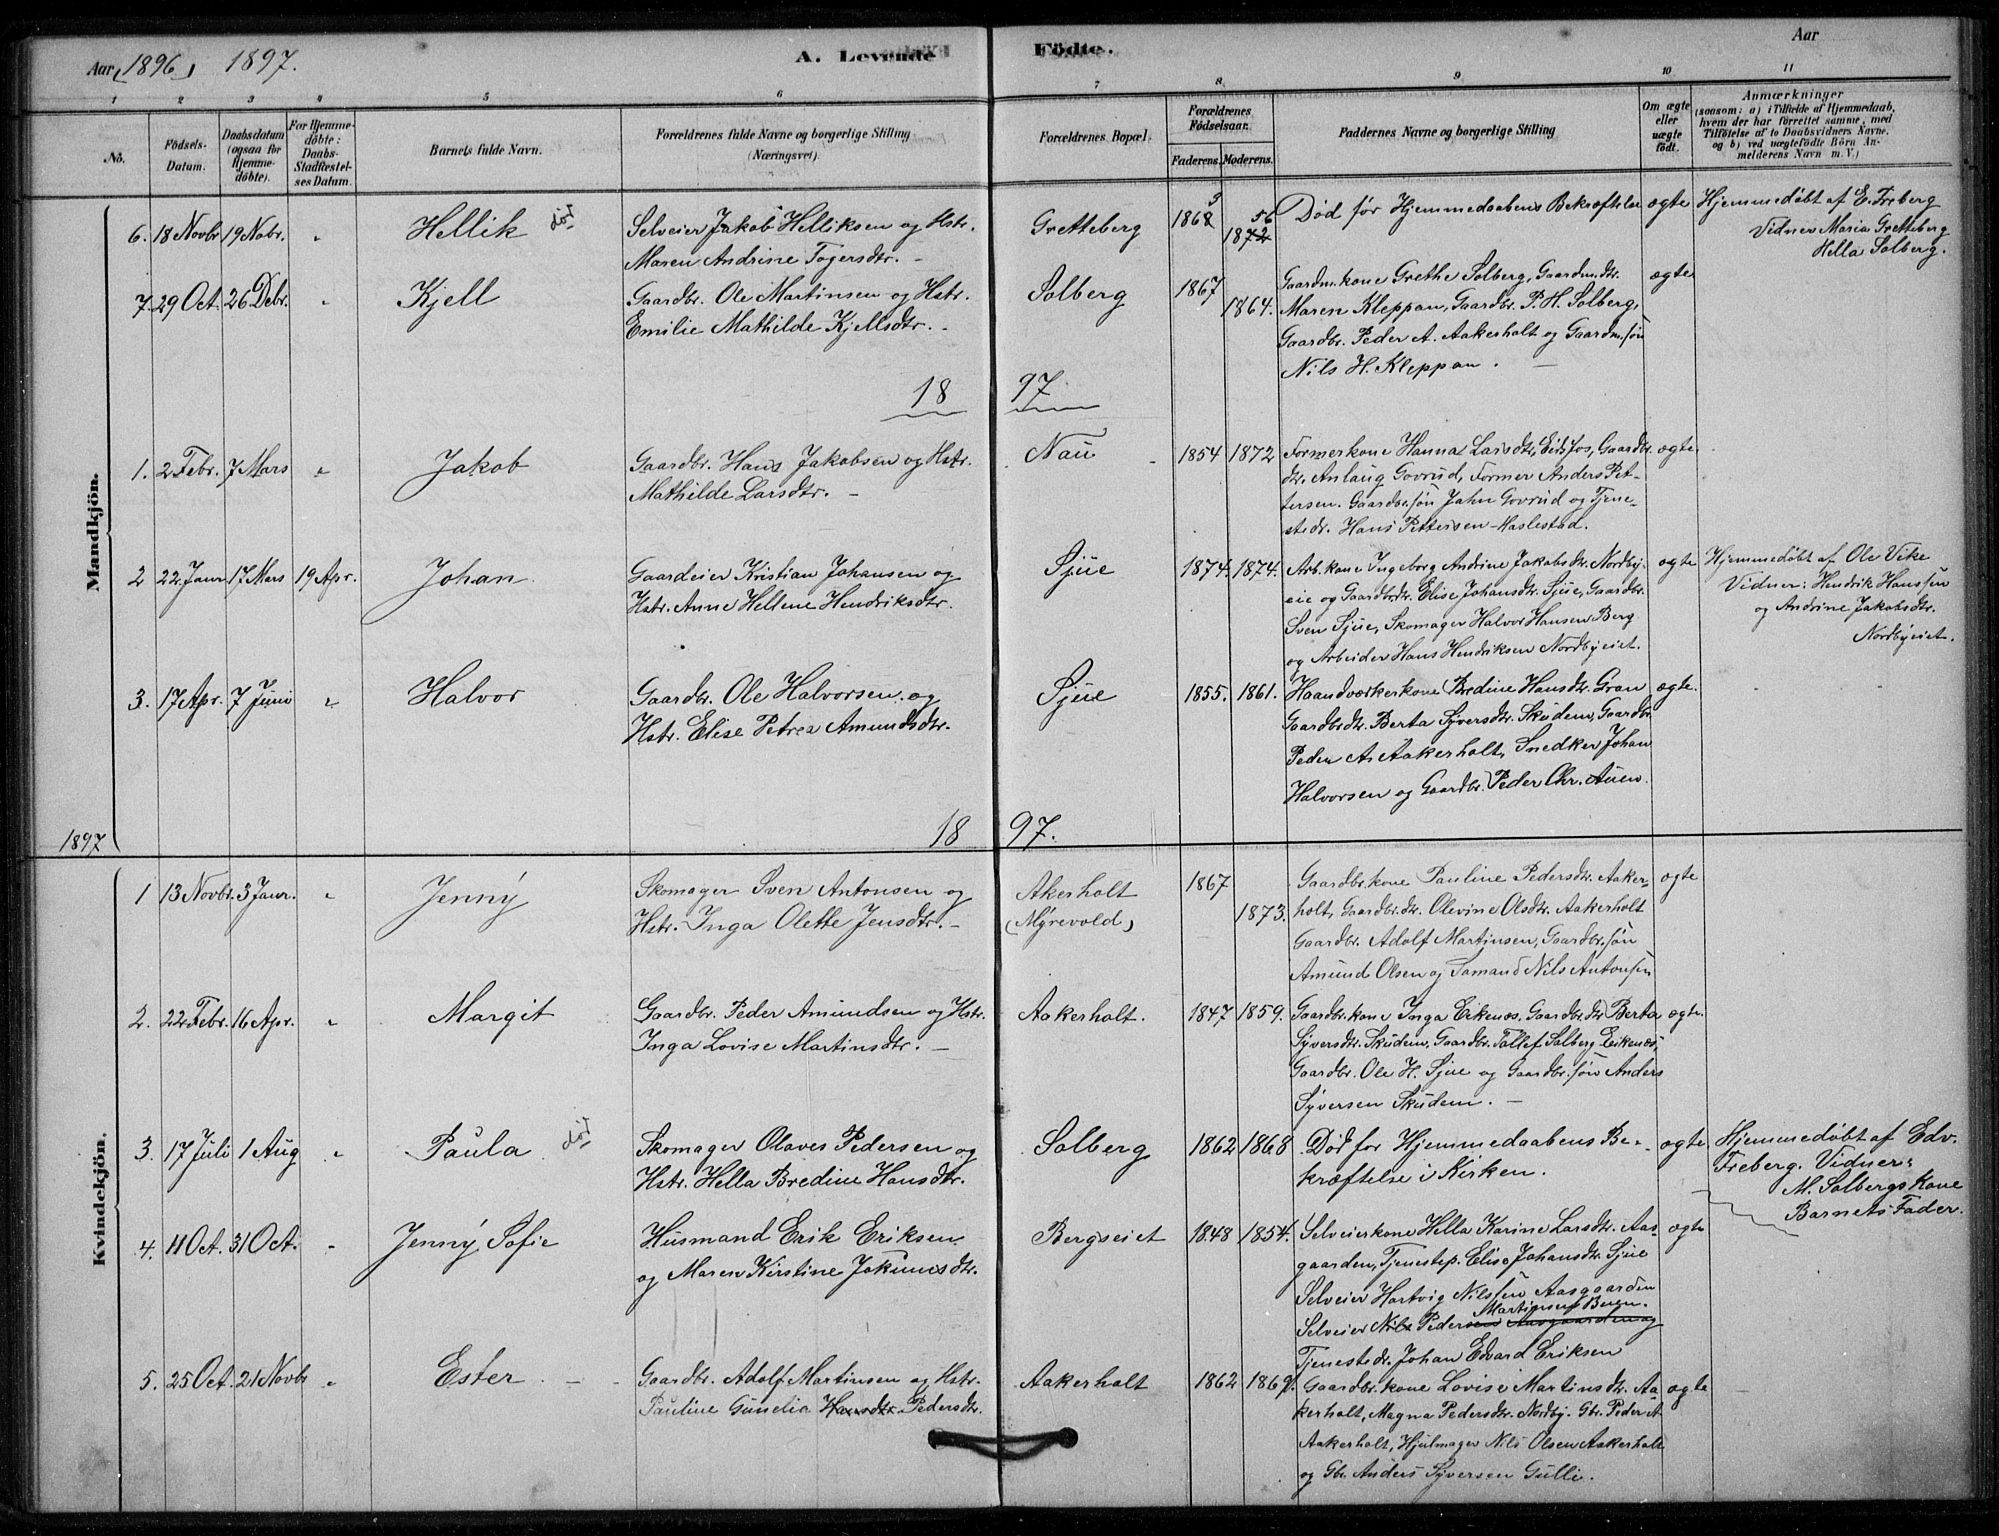 Aar (1896) 1897. A. Levende Födte. Aar
1 2 3 4 5 6 7 8 9 10 11
No. Födsels-Datum. Daabsdatum (ogsaa for Hjemme-döbte). For Hjemme-döbte: Daabs-Stadfæstel-ses Datum. Barnets fulde Navn. Forældrenes fulde Navne og borgerlige Stilling (Næringsvei). Forældrenes Bopæl. Forældrenes Födselsaar. Faderens. Moderens. Faddernes Navne og borgerlige Stilling Om ægte eller uægte födt. Anmærkninger (saasom: a) i Tilfælde af Hjemmedaab, hvem der har forrettet samme, med Tilföielse af to Daabsvidners Navne, og b) ved uægtefödte Börn An-melderens Navn m. V.)
Mandkjön.
6. 18 Novbr. 19 Nobr. " Hellik død Selveier Jakob Helliksen og Hstr. Gretteberg 1868 3 1872 56 Død før Hjemmedaabens Bekræftelse ægte Hjemmedøbt af E. Freberg
Maren Andrine Togersdtr. Vidner Maria Gretteberg
Hella Solberg.
7. 29 Oct. 26 Debr. " Kjell Gaardbr. Ole Martinsen og Hstr. Solberg 1867 1864. Gaardm.kone Grethe Solberg, Gaardm.dtr. ægte
Emilie Mathilde Kjellsdtr. Maren Kleppan, Gaardbr. P. H. Solberg,
Gaardbr. Peder A. Aakerholt og Gaardm.søn
Nils H. Kleppan.
18 97
1. 2 Febr. 7 Mars " Jakob Gaardbr. Hans Jakobsen og Hstr. Nau 1854 1872 Formerkone Hanna Larsdtr, Eidsfos, Gaardbr. ægte
Mathilde Larsdtr. dtr. Anlaug Govrud, Former Anders Pet-
tersen. Gaardbr.søn John Govrud og Tjene-
stedr. Hans Pettersen Haslestad.
2 22 Janr 17 Mars 19 Apr. Johan Gaardeier Kristian Johansen og Sjue 1874. 1874. Arb.kone Ingeborg Andrine Jakobsdtr. Nordby- ægte Hjemmedøbt af Ole Vike
Hstr. Anne Hellene Hendriksdtr. eie og Gaardbr.dtr. Elise Johansdtr. Sjue, Gaardbr. Vidner: Hendrik Hanssen
Sven Sjue, Skomager Halvor Hansen Berg og Andrine Jakobsdtr.
og Arbeider Hans Hendriksen Nordbyeiet. Nordbyeiet.
3. 17 Apr. 7 Juni " Halvor Gaardbr. Ole Halvorsen og Sjue 1855. 1861. Haandværkerkone Bredine Hansdtr. Gran ægte.
Hstr. Elise Petrea Amundsdtr. Gaardbr.dtr. Berta Syversdtr. Skudem, Gaardbr.
Peder A. Aakerholt, Snedker Johan
Halvorsen og Gaardbr. Peder Chr. Auen.
1897 18 97.
Kvindekjön.
1 13 Novbr. 3 Janr. " Jenny Skomager Sven Antonsen og Akerholt 1867 1873. Gaardbr.kone Pauline Pedersdtr. Aaker- ægte
Hstr. Inga Olette Jensdtr. (Myrevold) holt, Gaardbr.dtr. Olevine Olsdtr. Aakerholt
Gaardbr. Adolf Martinsen, Gaardbr.søn
Amund Olsen og Sømand Nils Antonsen
2. 22 Febr. 16 Apr. " Margit Gaardbr. Peder Amundsen og Hstr. Aakerholt. 1847 1859. Gaardbr.kone Inga Eikenæs, Gaardbr.dtr Berta ægte.
Inga Lovise Martinsdtr. Syversdtr. Skudem, Gaardbr. Tollef Solberg Eikenæs,
Gaardbr. Ole H. Sjue og Gaardbr.søn Anders
Syversen Skudem.
3. 17 Juli 1 Aug " Paula død Skomager Olaves Pedersen og Solberg 1862 1868 Død før Hjemmedaabens Be- ægte Hjemmedøbt af Edv.
Hstr. Hella Bredine Hansdtr. kræftelse i Kirken. Freberg. Vidner:
M. Solbergs Kone
Barnets Fader.
4. 11 Oct. 31 Oct. " Jenny Sofie Husmand Erik Eriksen Bergseiet 1848 1854. Selveierkone Hella Karine Larsdtr. Aas- ægte
og Maren Kirstine Jokumsdtr. gaarden, Tjenestep. Elise Johansdtr. Sjue
Selveier Hartvig Nilssen Aasgaarden
Martinsen Buen.
Selveier Nils Pedersen Aasgaarden og
Tjenestedr. Johan Edvard Eriksen
5. 25 Oct. 21 Novbr " Ester Gaardbr. Adolf Martinsen og Hstr. Aakerholt 1862 1869. Gaardbr.kone Lovise Martinsdtr. Aa- ægte
Pauline Gunelia Hansdtr. Pedersdtr. kerholt, Magna Pedersdtr. Nordby. Gbr. Peder A
Aakerholt, Hjulmager Nils Olsen Aakerholt
og Gbr. Anders Syversen Gulli.